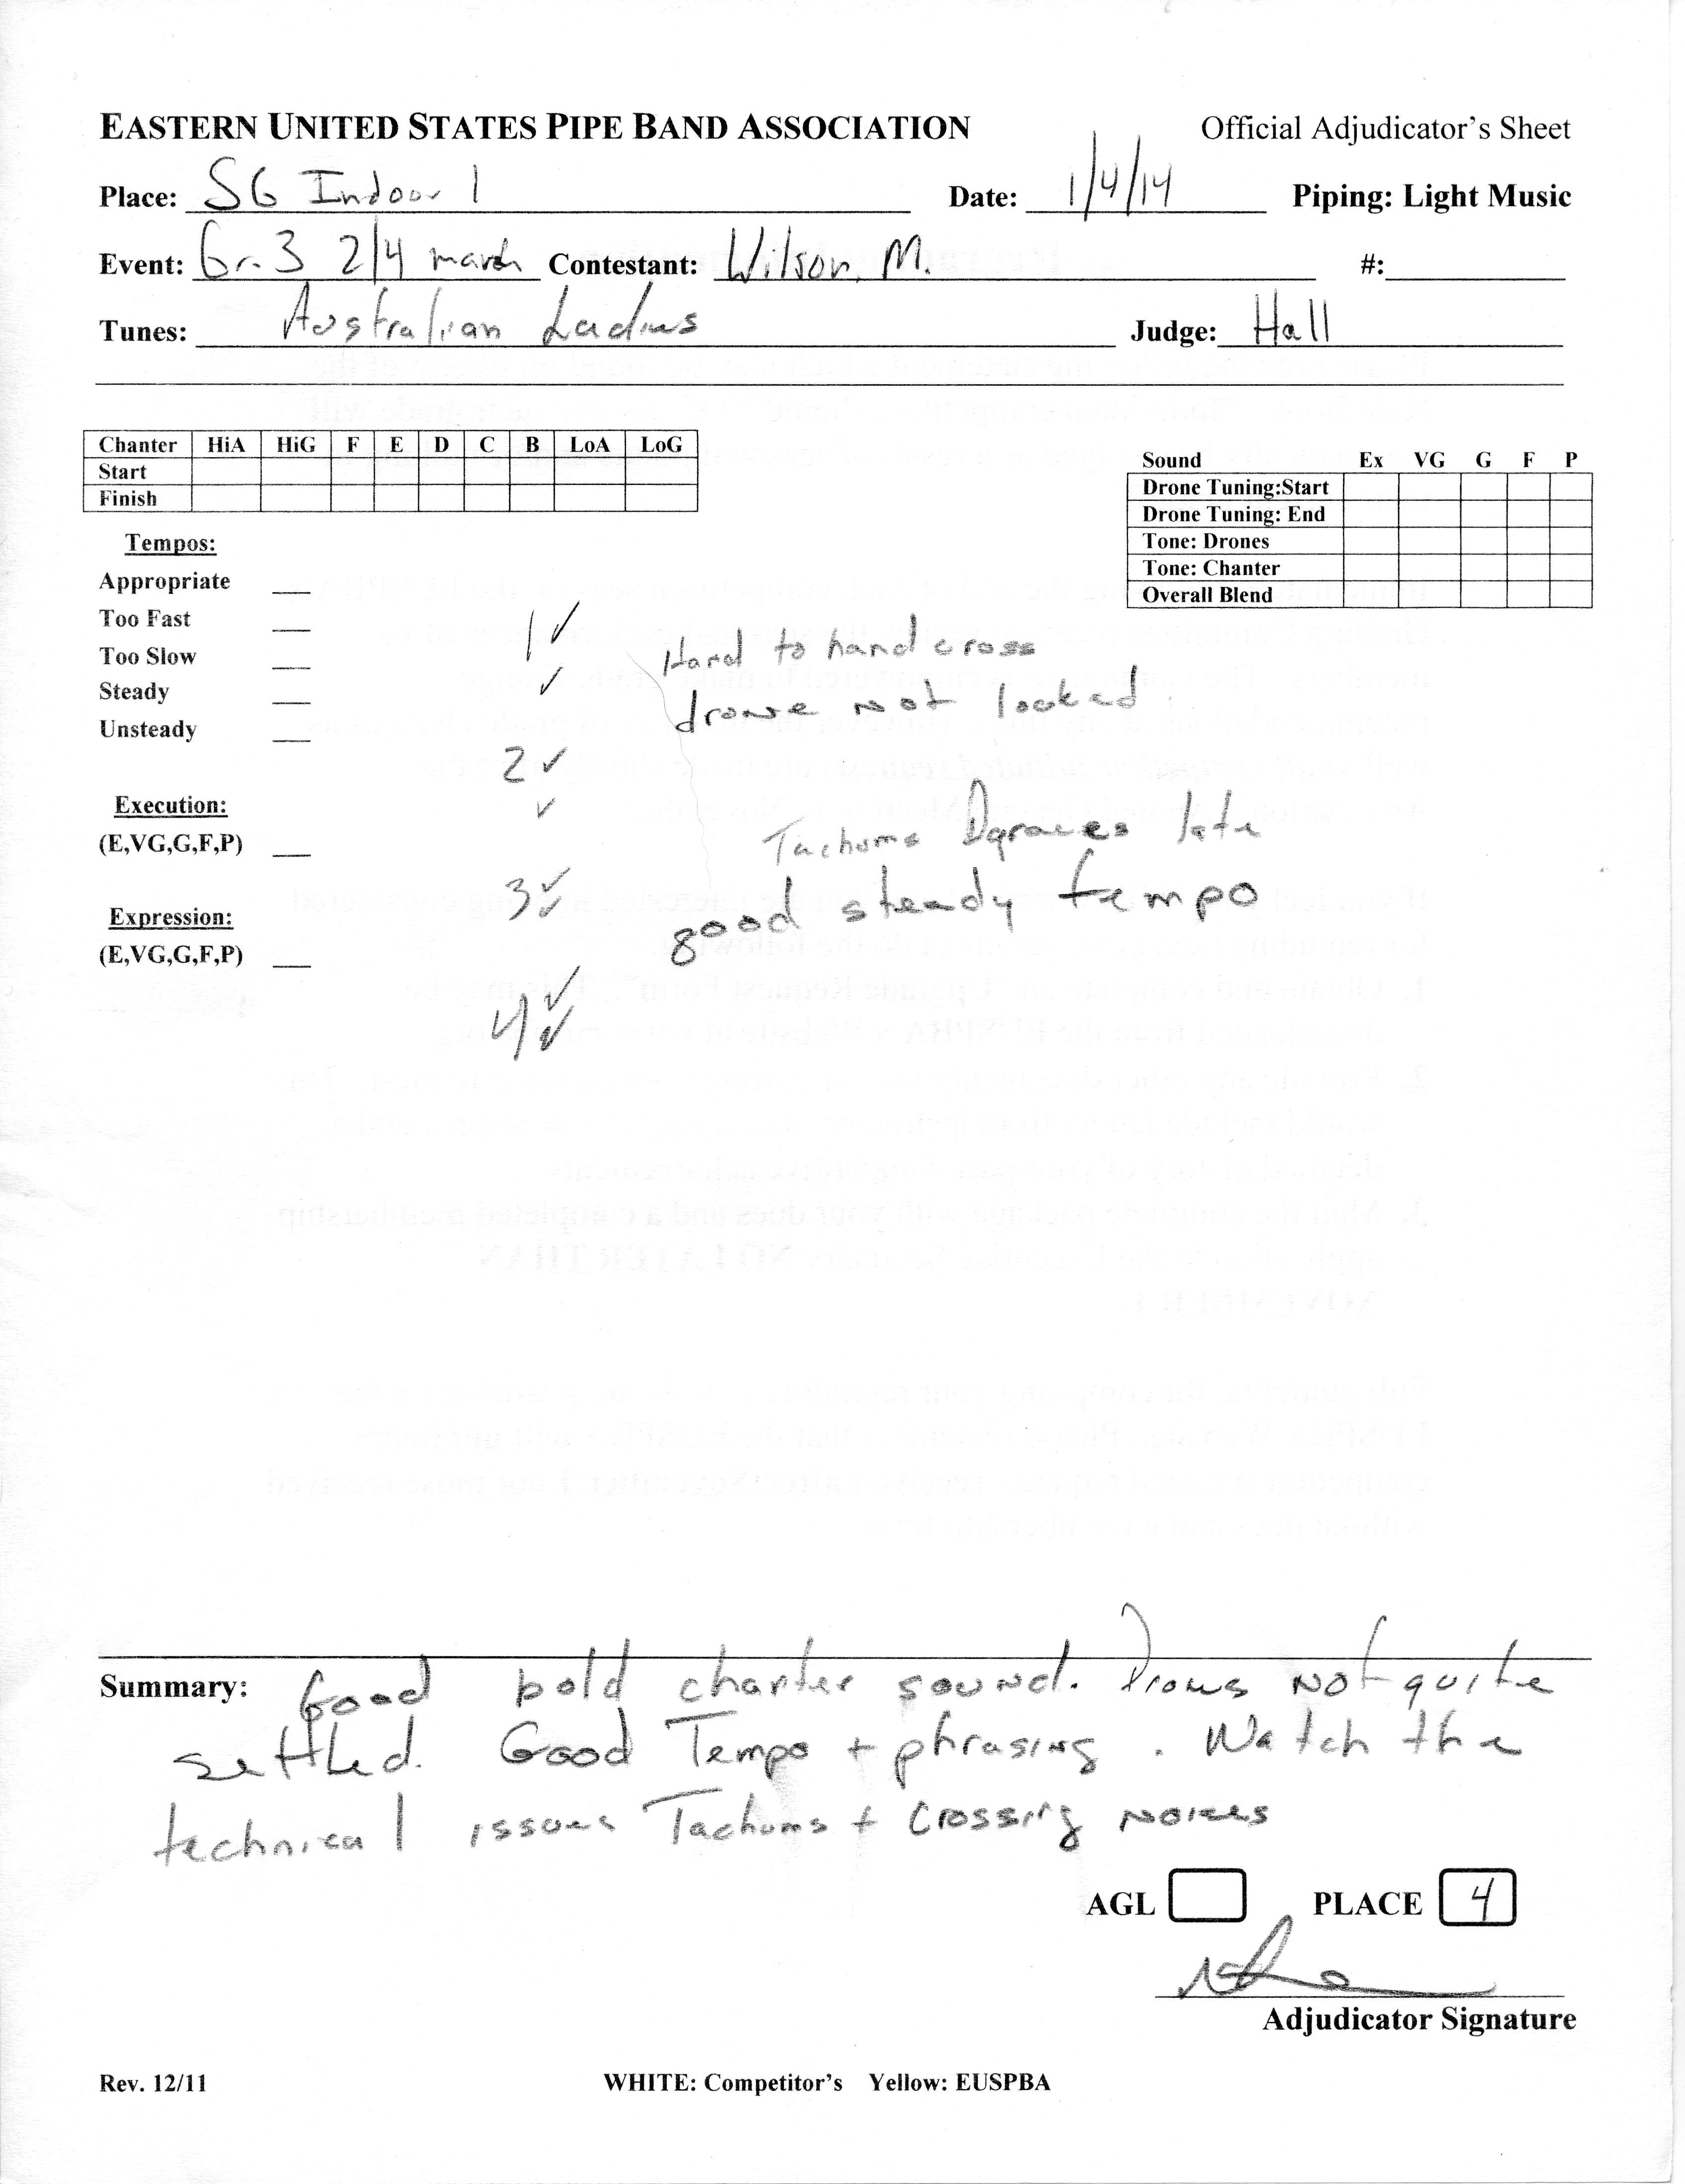 EASTERN UNITED STATES PIPE BAND ASSOCIATION Official Adjudicator's Sheet
Place: SG Indoor 1 Date: 1/4/14 Piping: Light Music
Event: Gr. 3 2/4 march Contestant: Wilson, M. #:
Tunes: Australian Ladies Judge: Hall
Chanter HiA HiG F E D C B LoA LoG
Start
Finish
Sound Ex VG G F P
Drone Tuning:Start
Drone Tuning: End
Tone: Drones
Tone: Chanter
Overall Blend
Tempos:
Appropriate
Too Fast
Too Slow
Steady
Unsteady
Execution:
(E,VG,G,F,P)
Expression:
(E,VG,G,F,P)
1 ✓ Hard to hand cross
✓ drone not locked
2 ✓
✓ Tachums Dgraces late
3 ✓ good steady tempo
✓
4 ✓
✓
Summary: Good bold chanter sound. Drones not quite
settled. Good Tempo + phrasing. Watch the
technical issues Tachums + Crossing noises
AGL PLACE 4
Adjudicator Signature
Rev. 12/11 WHITE: Competitor's Yellow: EUSPBA